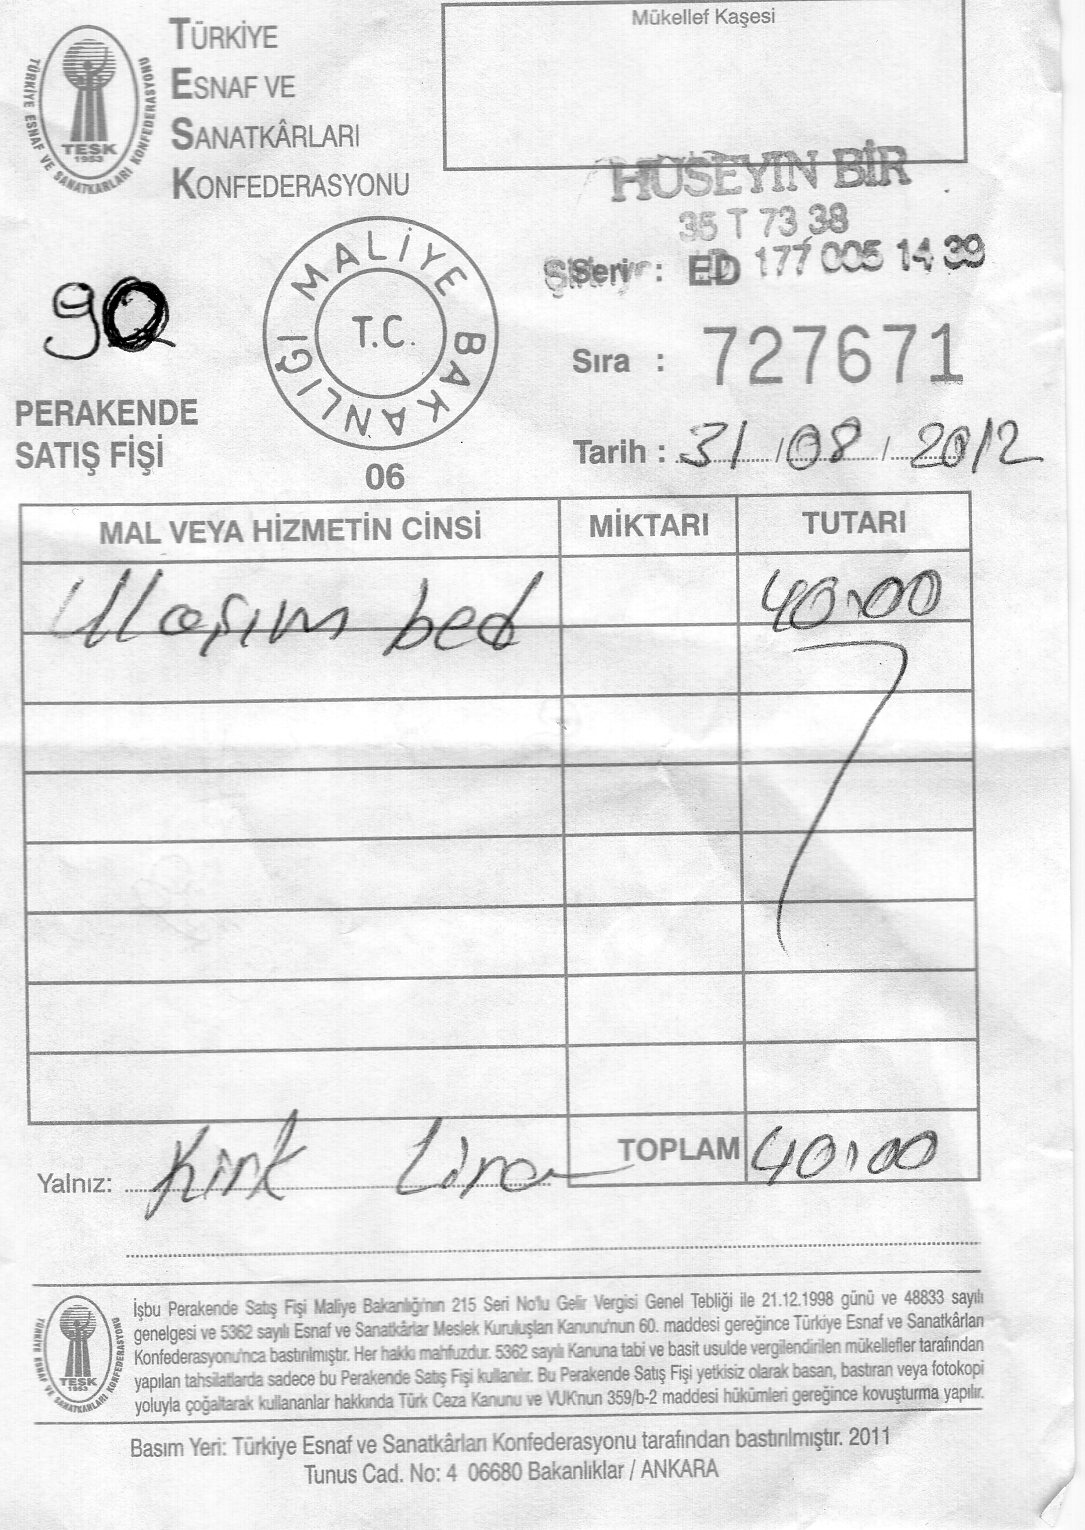 Mükellef Kaşesi
TÜRKİYE
ESNAF VE
SANATKÂRLARI
KONFEDERASYONU
TÜRKİYE ESNAF VE SANATKARLARI KONFEDERASYONU
TESK
1953
HÜSEYİN BİR
35 T 73 38
Seri : ED 177 005 14 39
T.C. MALİYE BAKANLIĞI
90
Sıra : 727671
PERAKENDE
SATIŞ FİŞİ
06
Tarih : 31/08/2012
MAL VEYA HİZMETİN CİNSİ MİKTARI TUTARI
Ulaşım bed 40.00
TOPLAM 40.00
Yalnız: Kırk Lira
İşbu Perakende Satış Fişi Maliye Bakanlığı'nın 215 Seri No'lu Gelir Vergisi Genel Tebliği ile 21.12.1998 günü ve 48833 sayılı
genelgesi ve 5362 sayılı Esnaf ve Sanatkârlar Meslek Kuruluşları Kanunu'nun 60. maddesi gereğince Türkiye Esnaf ve Sanatkârları
Konfederasyonu'nca bastırılmıştır. Her hakkı mahfuzdur. 5362 sayılı Kanuna tabi ve basit usulde vergilendirilen mükellefler tarafından
yapılan tahsilatlarda sadece bu Perakende Satış Fişi kullanılır. Bu Perakende Satış Fişi yetkisiz olarak basan, bastıran veya fotokopi
yoluyla çoğaltarak kullananlar hakkında Türk Ceza Kanunu ve VUK'nun 359/b-2 maddesi hükümleri gereğince kovuşturma yapılır.
TÜRKİYE ESNAF VE SANATKARLARI KONFEDERASYONU
TESK
1953
Basım Yeri: Türkiye Esnaf ve Sanatkârları Konfederasyonu tarafından bastırılmıştır. 2011
Tunus Cad. No: 4 06680 Bakanlıklar / ANKARA